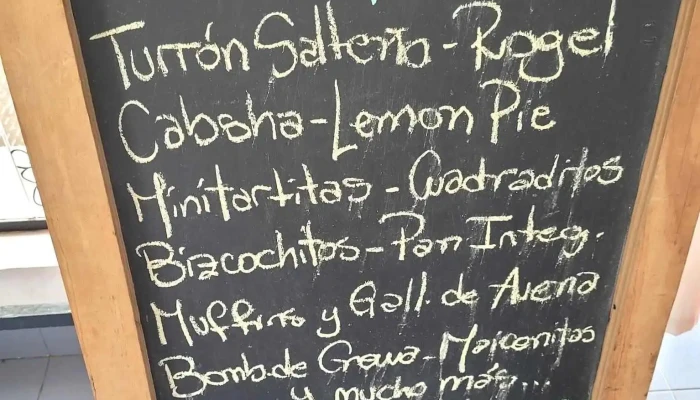 Turrón Salteño - Rogel
Cabsha - Lemon Pie
Minitartitas - Cuadraditos
Bizcochitos - Pan Integ.
Muffins y Gall. de Avena
Bomb. de Crema - Maicenitas
y mucho más...